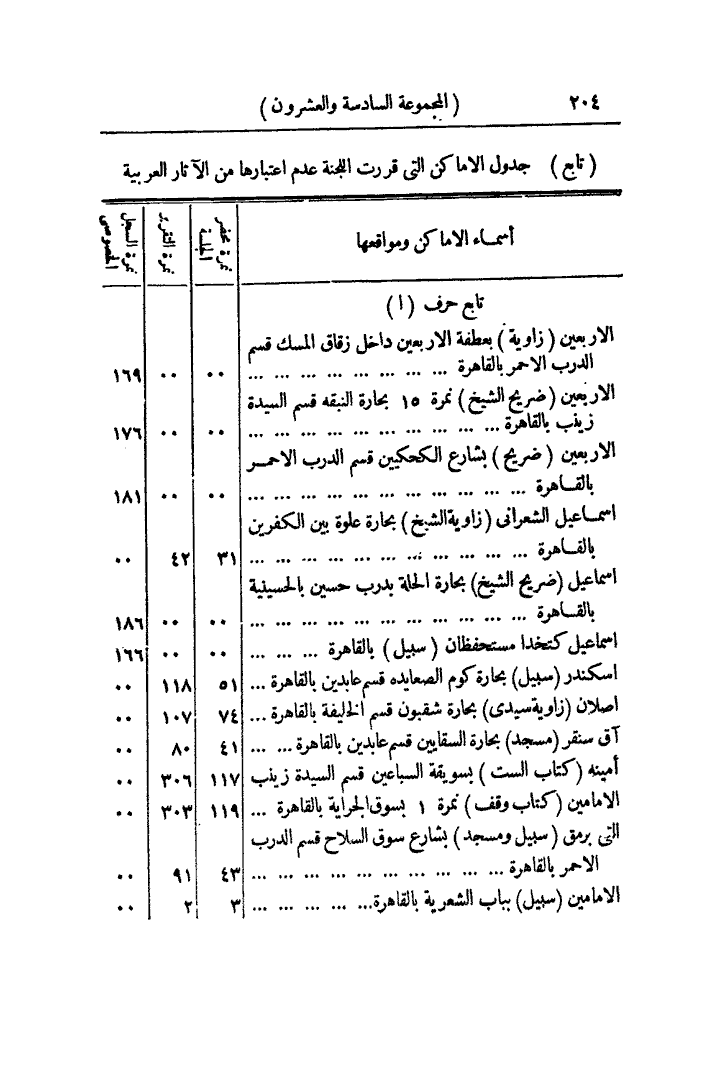 ٢٠٤ ( المجموعة السادسة والعشرون )
( تابع ) جدول الاماكن التى قررت اللجنة عدم اعتبارها من الآثار العربية
أسماء الاماكن ومواقعها نمرة محضر الجلسة نمرة التقرير نمرة السجل الخصوصى
تابع حرف ( ا )
الاربعين ( زاوية ) بعطفة الاربعين داخل زقاق المسك قسم
الدرب الاحمر بالقاهرة ... ... ... ... ... ... ... ... ٠٠ ٠٠ ١٦٩
الاربعين ( ضريح الشيخ ) نمرة ١٥ بحارة النبقه قسم السيدة
زينب بالقاهرة ... ... ... ... ... ... ... ... ... ... ٠٠ ٠٠ ١٧٦
الاربعين ( ضريح ) بشارع الكحكيين قسم الدرب الاحمر
بالقاهرة ... ... ... ... ... ... ... ... ... ... ... ٠٠ ٠٠ ١٨١
اسماعيل الشعرانى ( زاوية الشيخ ) بحارة علوة بين الكفرين
بالقاهرة ... ... ... ... ... ... ... ... ... ... ... ٣١ ٤٢ ٠٠
اسماعيل ( ضريح الشيخ ) بحارة الحلة بدرب حسين بالحسينية
بالقاهرة ... ... ... ... ... ... ... ... ... ... ... ٠٠ ٠٠ ١٨٦
اسماعيل كتخدا مستحفظان ( سبيل ) بالقاهرة ... ... ... ٠٠ ٠٠ ١٦٦
اسكندر ( سبيل ) بحارة كوم الصعايده قسم عابدين بالقاهرة ... ٥١ ١١٨ ٠٠
اصلان ( زاوية سيدى ) بحارة شقبون قسم الخليفة بالقاهرة ... ٧٤ ١٠٧ ٠٠
آق سنقر ( مسجد ) بحارة السقايين قسم عابدين بالقاهرة ... ... ٤١ ٨٠ ٠٠
أمينه ( كتاب الست ) بسويقة السباعين قسم السيدة زينب ١١٧ ٣٠٦ ٠٠
الامامين ( كتاب وقف ) نمرة ١ بسوق الجراية بالقاهرة ... ١١٩ ٣٠٣ ٠٠
التى برمق ( سبيل ومسجد ) بشارع سوق السلاح قسم الدرب
الاحمر بالقاهرة ... ... ... ... ... ... ... ... ... ... ٤٣ ٩١ ٠٠
الامامين ( سبيل ) بباب الشعرية بالقاهرة ... ... ... ... ... ٣ ٢ ٠٠